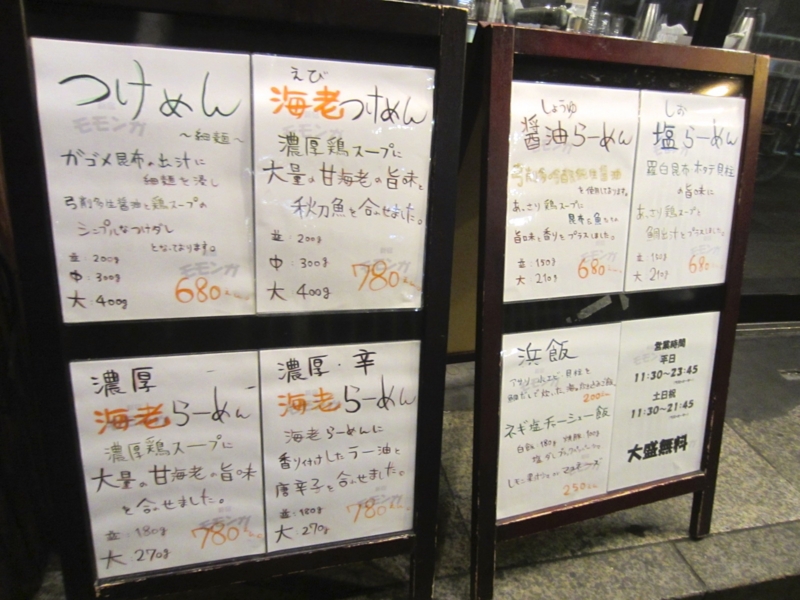 つけめん
～細麺～
ガゴメ昆布の出汁に
細麺を浸し
弓削多生醤油と鶏スープの
シンプルなつけダレ
となっております。
並：200g
中：300g
大：400g
680
えび
海老つけめん
濃厚鶏スープに
大量の甘海老の旨味と
秋刀魚を合せました。
並：200g
中：300g
大：400g
モモンガ
780
濃厚
海老らーめん
濃厚鶏スープに
大量の甘海老の旨味
を合せました。
並：180g
大：270g
モモンガ
780
濃厚・辛
海老らーめん
海老らーめんに
香り付けしたラー油と
唐辛子を合せました。
並：180g
大：270g
780
しょうゆ
醤油らーめん
を使用しております。
あっさり鶏スープに
昆布と魚たちの
旨味と香りをプラスしました。
並：150g
大：210g
モモンガ
680
しお
塩らーめん
羅臼昆布 ホタテ貝柱
の旨味に
あっさり鶏スープと
鯛出汁をプラスしました。
並：150g
大：210g
680
浜飯
200
ネギ塩チャーシュー飯
250
営業時間
平日
11:30～23:45
土日祝
11:30～21:45
大盛無料